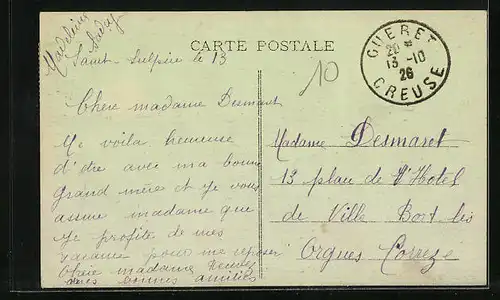 Madeleine
CARTE POSTALE
Saint-Sulpice le 13
10
GUERET
20 *
13 -10
26
CREUSE
Chere madame Desmaret
Me voila heureuse
d'etre avec ma bonne
Grand mère et je vous
assure madame que
je profite de mes
vacance pour me reposer
Chere madame
mes bonnes amitiés
Madame Desmaret
13 place de l'Hotel
de Ville Bort les
Orgues Correze